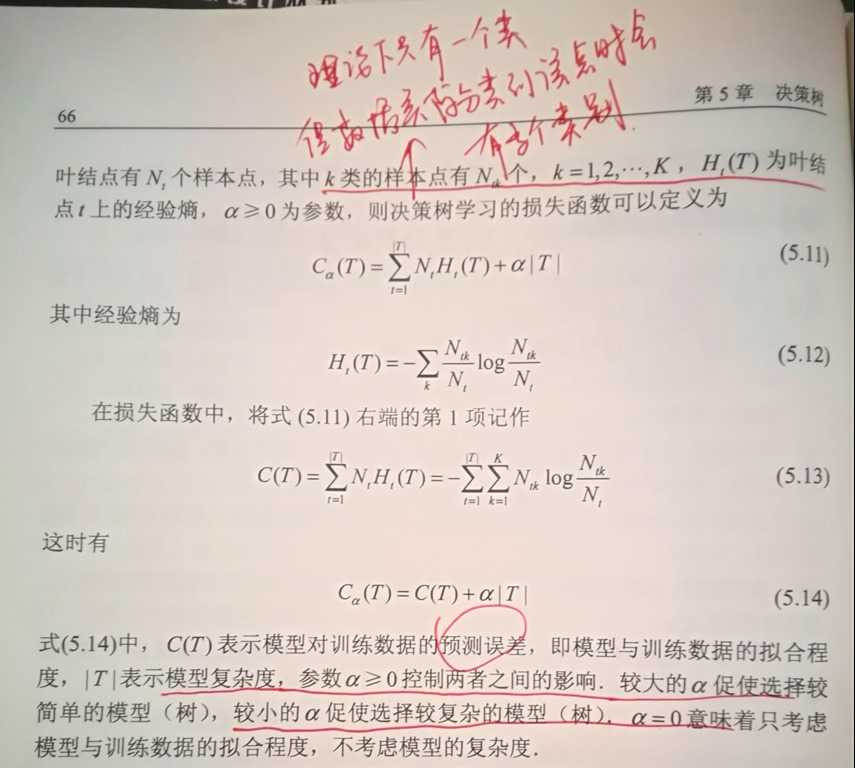 理论下只有一个类
但数据实际分类到该点时会
有多个类别.
66
第 5 章 决策树
叶结点有 N_t 个样本点，其中 k 类的样本点有 N_{tk} 个，k = 1,2,⋯,K，H_t(T) 为叶结
点 t 上的经验熵，α ≥ 0 为参数，则决策树学习的损失函数可以定义为
C_α(T) = \sum_{t=1}^{|T|} N_t H_t(T) + α|T| (5.11)
其中经验熵为
H_t(T) = -\sum_k \frac{N_{tk}}{N_t} \log \frac{N_{tk}}{N_t} (5.12)
在损失函数中，将式 (5.11) 右端的第 1 项记作
C(T) = \sum_{t=1}^{|T|} N_t H_t(T) = -\sum_{t=1}^{|T|} \sum_{k=1}^{K} N_{tk} \log \frac{N_{tk}}{N_t} (5.13)
这时有
C_α(T) = C(T) + α|T| (5.14)
式(5.14)中，C(T) 表示模型对训练数据的预测误差，即模型与训练数据的拟合程
度，|T| 表示模型复杂度，参数 α ≥ 0 控制两者之间的影响．较大的 α 促使选择较
简单的模型（树），较小的 α 促使选择较复杂的模型（树）．α = 0 意味着只考虑
模型与训练数据的拟合程度，不考虑模型的复杂度．